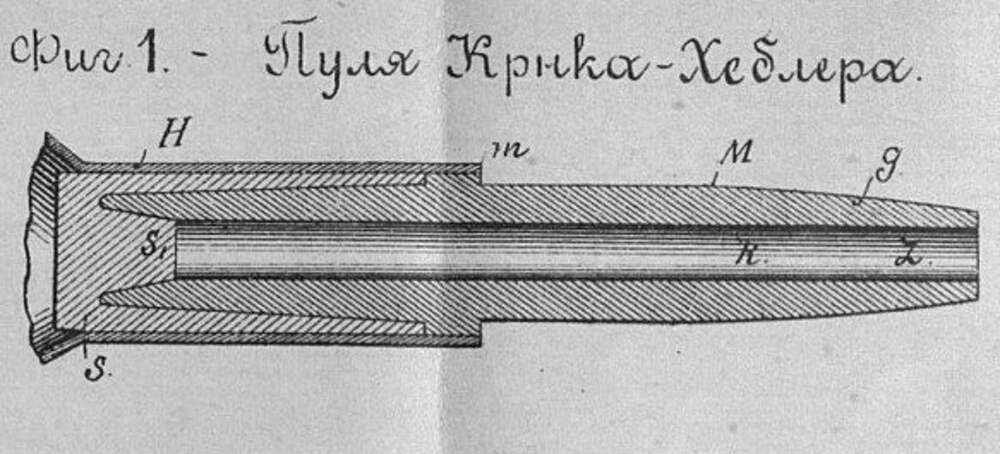 Фиг. 1. - Пуля Крнка-Хеблера.
H
m
M
g.
S₁
k.
Z.
S.